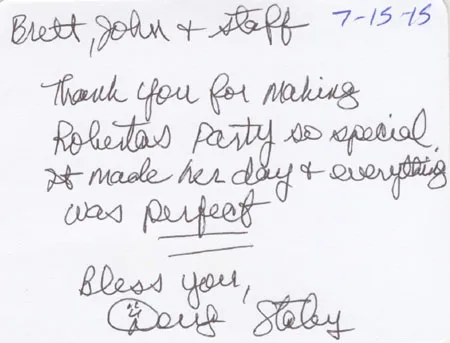 Brett, John + staff 7-15-15
Thank you for making
Roberta's party so special.
It made her day + everything
was perfect
Bless you,
Doug Staley